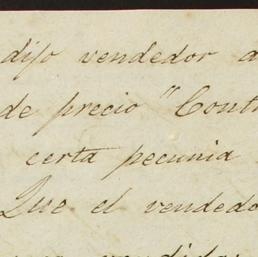 dijo vendedor a
de precio "Cont
certa pecunia
Que el vendedo